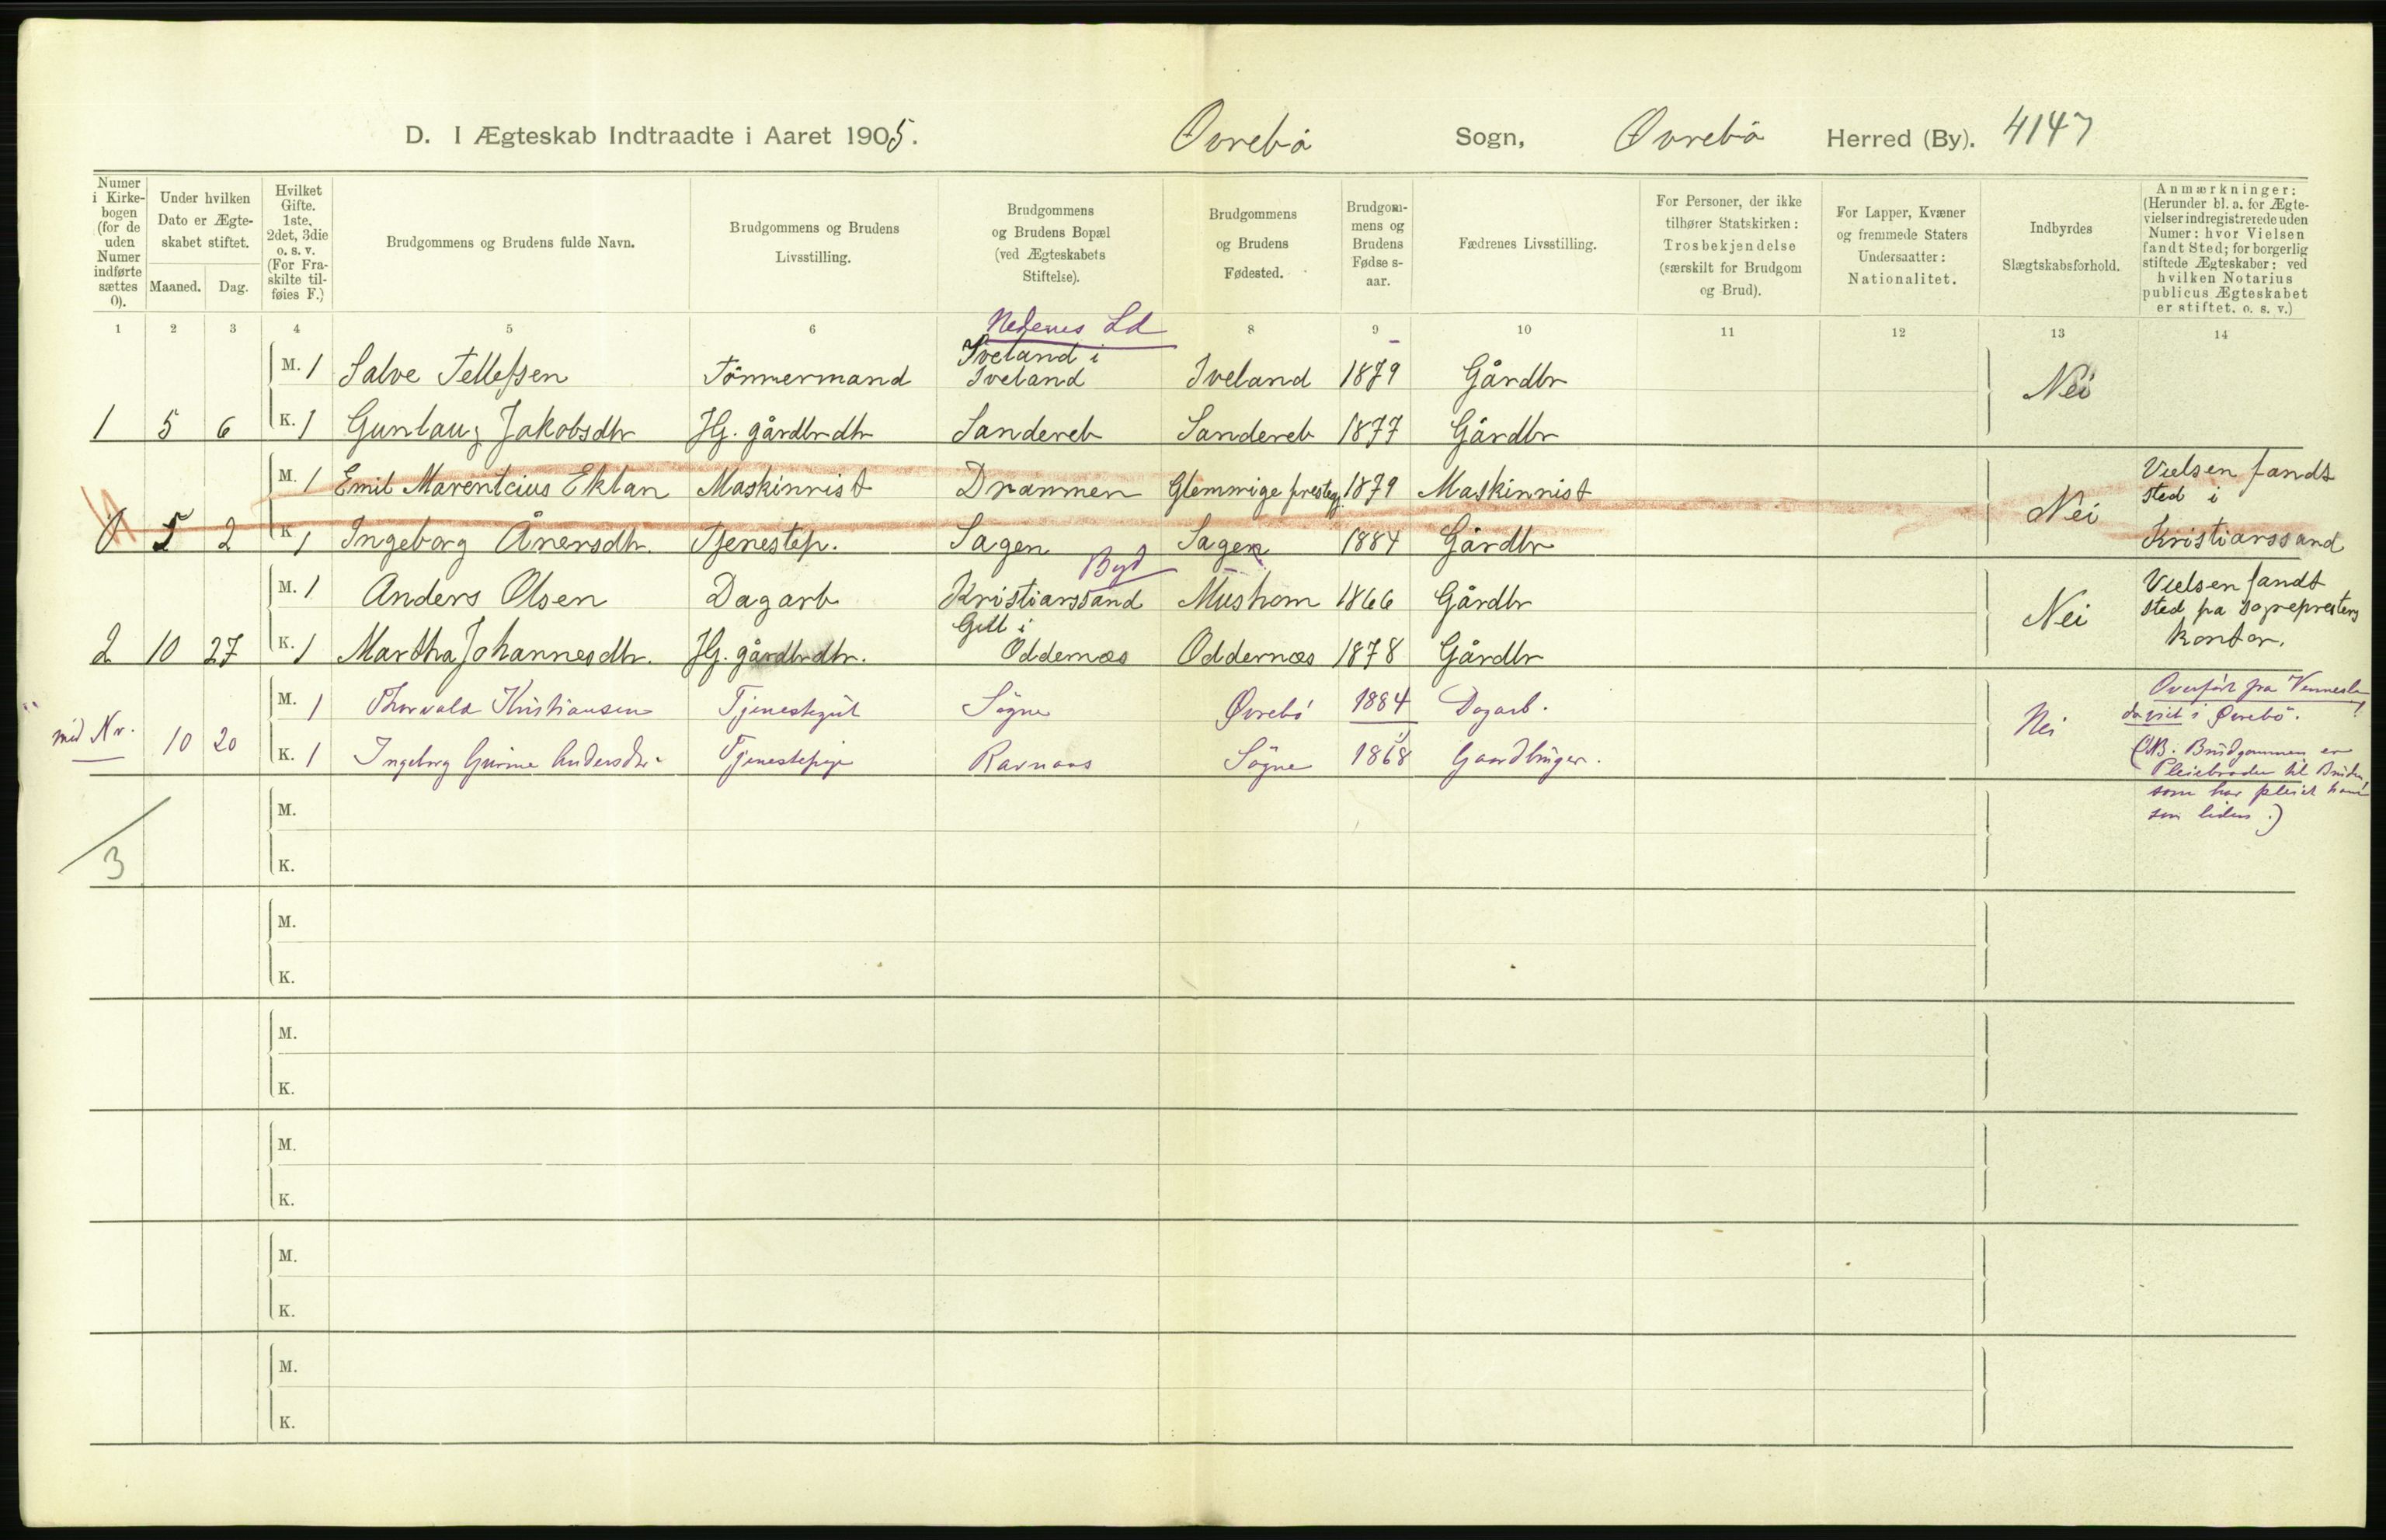 D. I Ægteskab Indtraadte i Aaret 1905. Øvrebö Sogn, Øvrebö Herred (By). 4147
Numer i Kirke-bogen (for de uden Numer indførte sættes 0).
Under hvilken Dato er Ægte-skabet stiftet.
Maaned. Dag.
Hvilket Gifte. 1ste, 2det, 3die o. s. v. (For Fra-skilte til-føies F.)
Brudgommens og Brudens fulde Navn.
Brudgommens og Brudens Livsstilling.
Brudgommens og Brudens Bopæl (ved Ægteskabets Stiftelse).
Brudgommens og Brudens Fødested.
Brudgom-mens og Brudens Fødse s-aar.
Fædrenes Livsstilling.
For Personer, der ikke tilhører Statskirken: Trosbekjendelse (særskilt for Brudgom og Brud).
For Lapper, Kvæner og fremmede Staters Undersaatter: Nationalitet.
Indbyrdes Slægtskabsforhold.
Anmærkninger: (Herunder bl. a. for Ægte-vielser indregistrerede uden Numer: hvor Vielsen fandt Sted; for borgerlig stiftede Ægteskaber: ved hvilken Notarius publicus Ægteskabet er stiftet. o. s. v.)
1 2 3 4 5 6 8 9 10 11 12 13 14
Nedenes Ld
Iveland i
M. 1 Salve Tellefsen Tömmermand Iveland Iveland 1879 Gårdbr Nei
1 5 6 K. 1 Gunlaug Jakobsdtr Hg. gårdbrdtr Sandereb Sandereb 1877 Gårdbr
M. 1 Emil Marentcius Eklan Maskinnist Drammen Glemmige presteg. 1879 Maskinnist Nei Vielsen fandt
sted i
0 5 2 K. 1 Ingeborg Ånersdtr. Tjenestep. Sagen Sagen 1884 Gårdbr Kristianssand
By
M. 1 Anders Olsen Dagarb Kristianssand Mushom 1866 Gårdbr Nei Vielsen fandt
sted på sognepresten
Gill i
2 10 27 K. 1 Martha Johannesdtr. Hg. gårdbrdtr. Oddernæs Oddernæs 1878 Gårdbr kontor.
M. 1 Thorvald Kristiansen Tjenestegut Sögne Øvrebö 1884 Dagarb. Nei Overfört fra Vennesla
viet i Øvrebö.
Nr. 10 20 K. 1 Ingeborg Gurine Andersdtr. Tjenestepige Ravnaas Sögne 1868 Gaardbruger.
(NB. Brudgommen er
Pleiebroder til Bruden,
som har pleiet ham
som liden.)
3
M.
K.
M.
K.
M.
K.
M.
K.
M.
K.
M.
K.